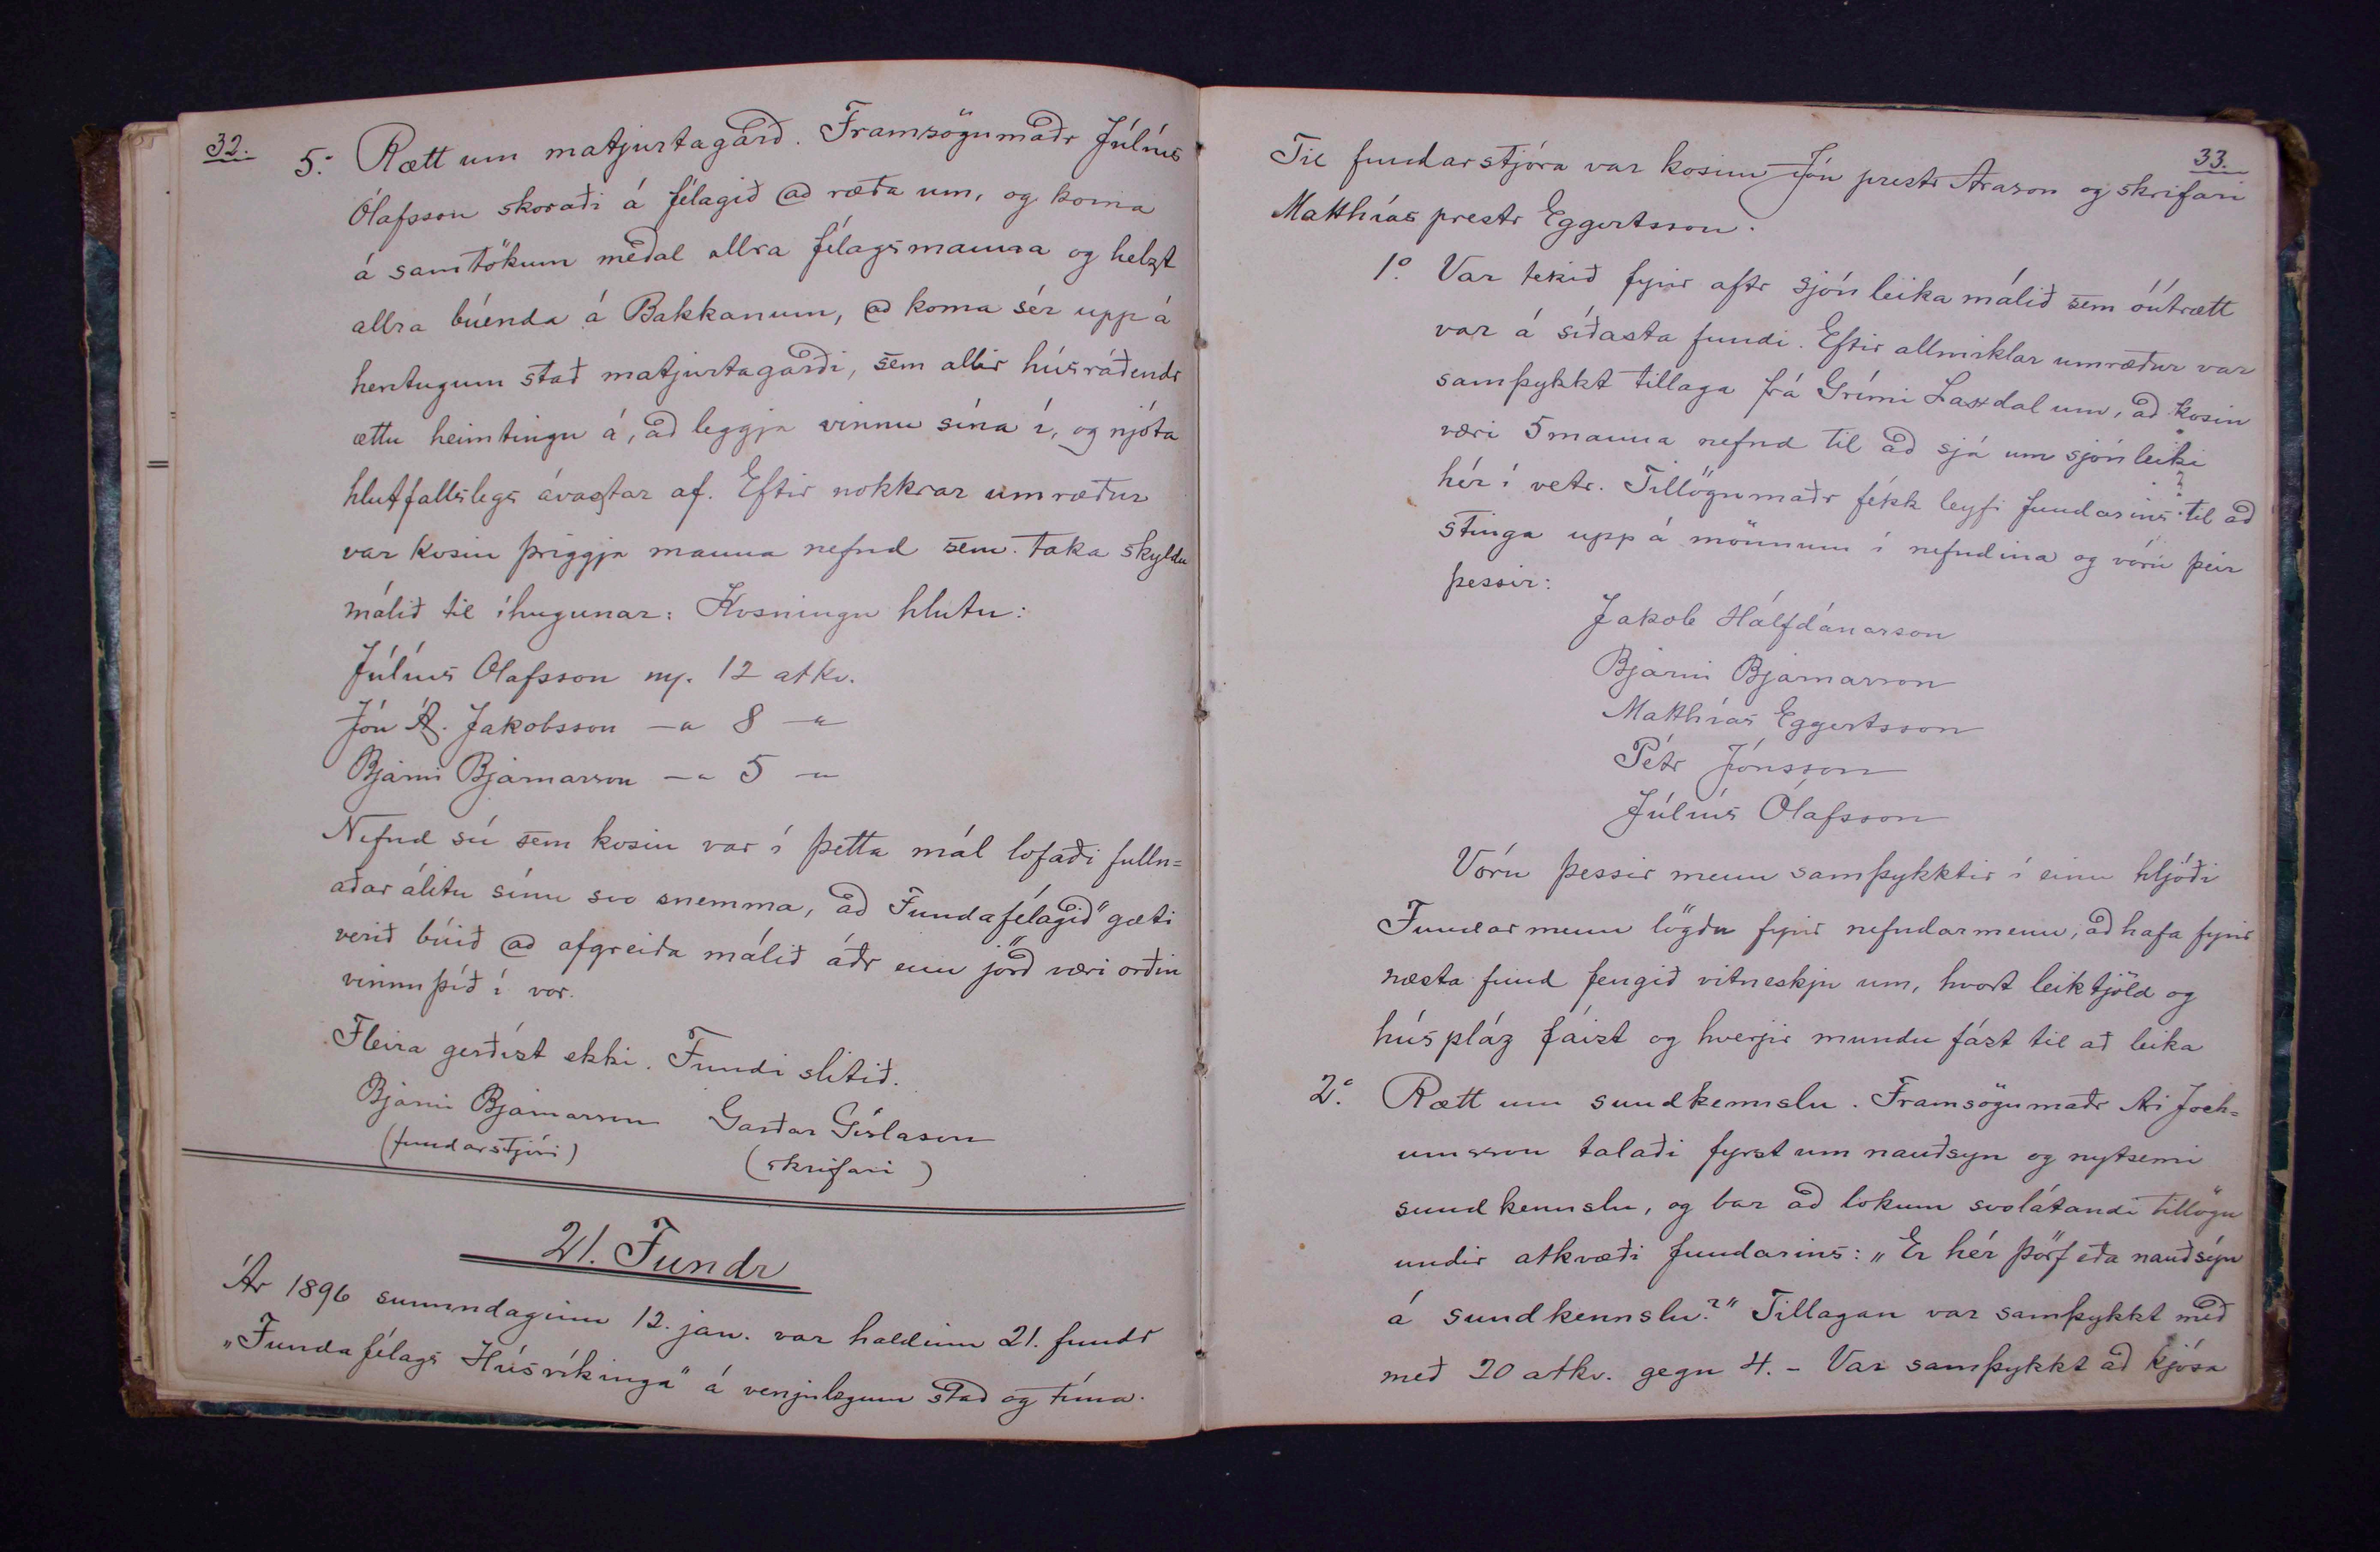 32.
5. Rætt um matjurtagarð. Framsögumaðr Júlíus
Ólafsson skoraði á félagið að ræða um, og koma
á samtökum meðal allra félagsmanna og helzt
allra búenda á Bakkanum, að koma sér upp á
hentugum stað matjurtagarði, sem allir húsráðendr
ættu heimtingu á, að leggja vinnu sína í, og njóta
hlutfallslegs ávaxtar af. Eftir nokkrar umræður
var kosin þriggja manna nefnd sem taka skyldu
málið til íhugunar: Kosningu hlutu:
Júlíus Ólafsson m. 12 atkv.
Jón Á. Jakobsson — „ 8 — „
Bjarni Bjarnarson — „ 5 — „
Nefnd sú sem kosin var í þetta mál lofaði fulln=
aðar álitu sínu svo snemma, að Fundafélagið" gæti
verið búið að afgreiða málið áðr enn jörð væri orðin
vinnuþíð í vor.
Fleira gerðist ekki. Fundi slitið.
Bjarni Bjarnarson Garðar Gíslason
(fundarstjóri) (skrifari)
21. Fundr
Ár 1896 sunnudaginn 12. jan. var haldinn 21. fundr
„Fundafélags Húsvíkinga" á venjulegum stað og tíma.
33.
Til fundarstjóra var kosinn Jón prestr Arason og skrifari
Matthías prestr Eggertsson.
1º. Var tekið fyrir aftr sjónleika málið sem óútrætt
var á síðasta fundi. Eftir allmiklar umræður var
samþykkt tillaga frá Grími Laxdal um, að kosin
væri 5 manna nefnd til að sjá um sjónleiki
hér í vetr. Tillögumaðr fékk leyfi fundarins til að
stinga upp á mönnum í nefndina og vóru þeir
þessir:
Jakob Hálfdánarson
Bjarni Bjarnarson
Matthías Eggertsson
Pétr Jónsson
Júlíus Ólafsson
Vóru þessir menn samþykktir í einu hljóði
Fundarmenn lögðu fyrir nefndarmenn, að hafa fyrir
næsta fund fengið vitneskju um, hvort leiktjöld og
húspláz fáist og hverjir mundu fást til að leika
2º. Rætt um sundkennslu. Framsögumaðr Ari Joch=
umsson talaði fyrst um nauðsyn og nytsemi
sundkennslu, og bar að lokum svolátandi tillögu
undir atkvæði fundarins: „Er hér þörf eða nauðsýn
á sundkennslu?" Tillagan var samþykkt með
með 20 atkv. gegn 4. – Var samþykkt að kjósa